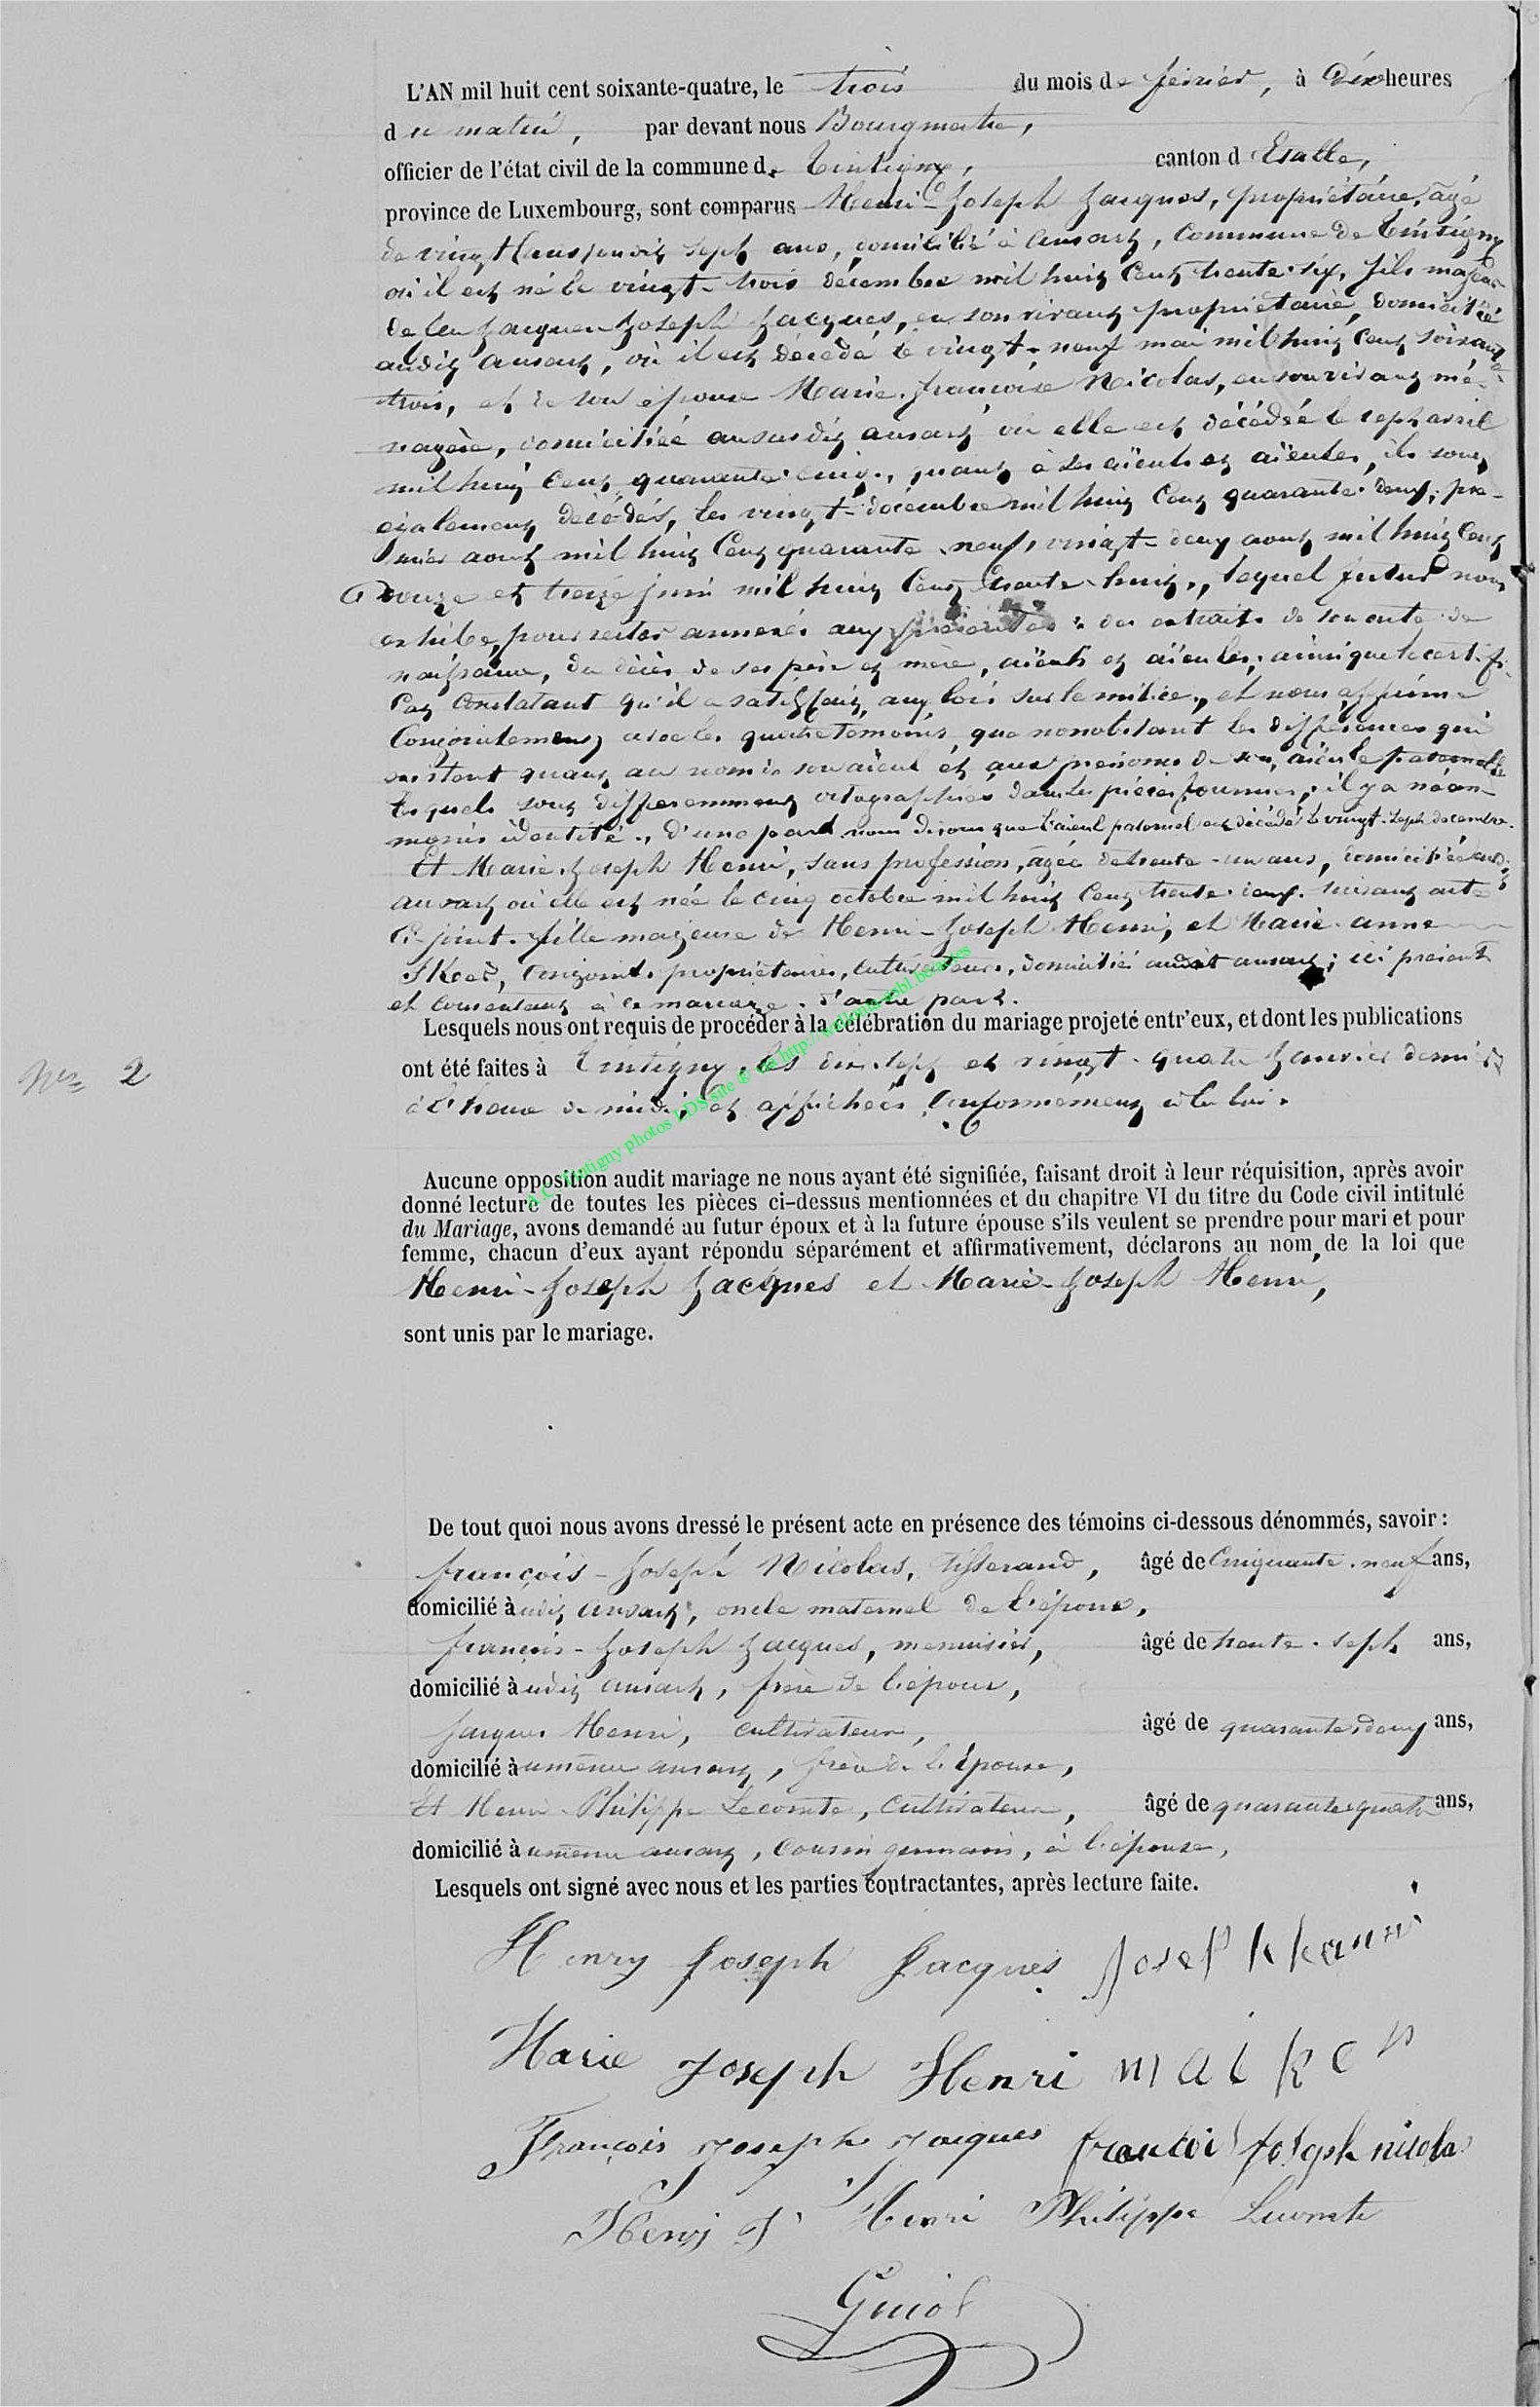 L'AN mil huit cent soixante-quatre, le trois du mois de février, à dix heures
du matin, par devant nous Bourgmestre,
officier de l'état civil de la commune de Tintigny, canton d'Etalle,
province de Luxembourg, sont comparus Henri-Joseph Jacques, propriétaire, âgé
de vingt sept ans, domicilié à Ansart, commune de Tintigny
où il est né le vingt-trois décembre mil huit cent trente-six, fils majeur
de feu Jacques Joseph Jacques, en son vivant propriétaire, domicilié
audit Ansart, où il est décédé le vingt-neuf mai mil huit cent soixante
trois, et de son épouse Marie-françoise Nicolas, en son vivant mé-
nagère, domiciliée au susdit ansart où elle est décédée le sept avril
mil huit cent quarante-cinq., quant à ses aïeuls et aïeules, ils sont
également décédés, les vingt-décembre mil huit cent quarante-deux, pre-
mier août mil huit cent quarante-neuf, vingt-deux août mil huit cent
douze et treize juin mil huit cent trente-huit., lequel futur nous
exhibe, pour rester annexés aux présentes: des extraits de son acte de
naissance, du décès de ses père et mère, aïeuls et aïeules; ainsi que le certifi-
cat constatant qu'il a satisfait aux lois sur la milice., et nous affirme
conjointement avec les quatre témoins, que nonobstant les différences qui
existent quant au nom de son aïeul et aux prénoms de son aïeule paternelle
lesquels sont différemment ortographiés dans les pièces fournies; il y a néan-
moins identité., d'une part nous disons que l'aïeul paternel est décédé le vingt-sept décembre.
Et Marie-Joseph Henri, sans profession, âgée de trente-un ans, domiciliée audit
ansart où elle est née le cinq octobre mil huit cent trente-deux. suivant acte
ci-joint. fille majeure de Henri-Joseph Henri, et Marie-anne
conjoints propriétaires, cultivateurs, domiciliés audit ansart; ici présents
et consentant à ce mariage. d'autre part.
Lesquels nous ont requis de procéder à la célébration du mariage projeté entr'eux, et dont les publications
Nº 2
ont été faites à Tintigny, les dix-sept et vingt-quatre Janvier dernier
à l'heure de midi, et affichées conformément à la loi.
Aucune opposition audit mariage ne nous ayant été signifiée, faisant droit à leur réquisition, après avoir
donné lecture de toutes les pièces ci-dessus mentionnées et du chapitre VI du titre du Code civil intitulé
du Mariage, avons demandé au futur époux et à la future épouse s'ils veulent se prendre pour mari et pour
femme, chacun d'eux ayant répondu séparément et affirmativement, déclarons au nom de la loi que
Henri-Joseph Jacques et Marie-Joseph Henri,
sont unis par le mariage.
De tout quoi nous avons dressé le présent acte en présence des témoins ci-dessous dénommés, savoir :
françois-Joseph Nicolas, tisserand, âgé de cinquante-neuf ans,
domicilié audit ansart, oncle maternel de l'époux,
françois-Joseph Jacques, menuisier, âgé de trente-sept ans,
domicilié audit ansart, frère de l'époux,
Jacques Henri, cultivateur, âgé de quarante-deux ans,
domicilié au même ansart, frère de l'épouse,
Et Henri-Philippe Lecomte, cultivateur, âgé de quarante-quatre ans,
domicilié au même ansart, cousin germain, à l'épouse,
Lesquels ont signé avec nous et les parties contractantes, après lecture faite.
Henry Joseph Jacques
Marie Joseph Henri
François Joseph Jacques francois joseph nicolas
Henri J Henri Philippe Lecomte
Guiot